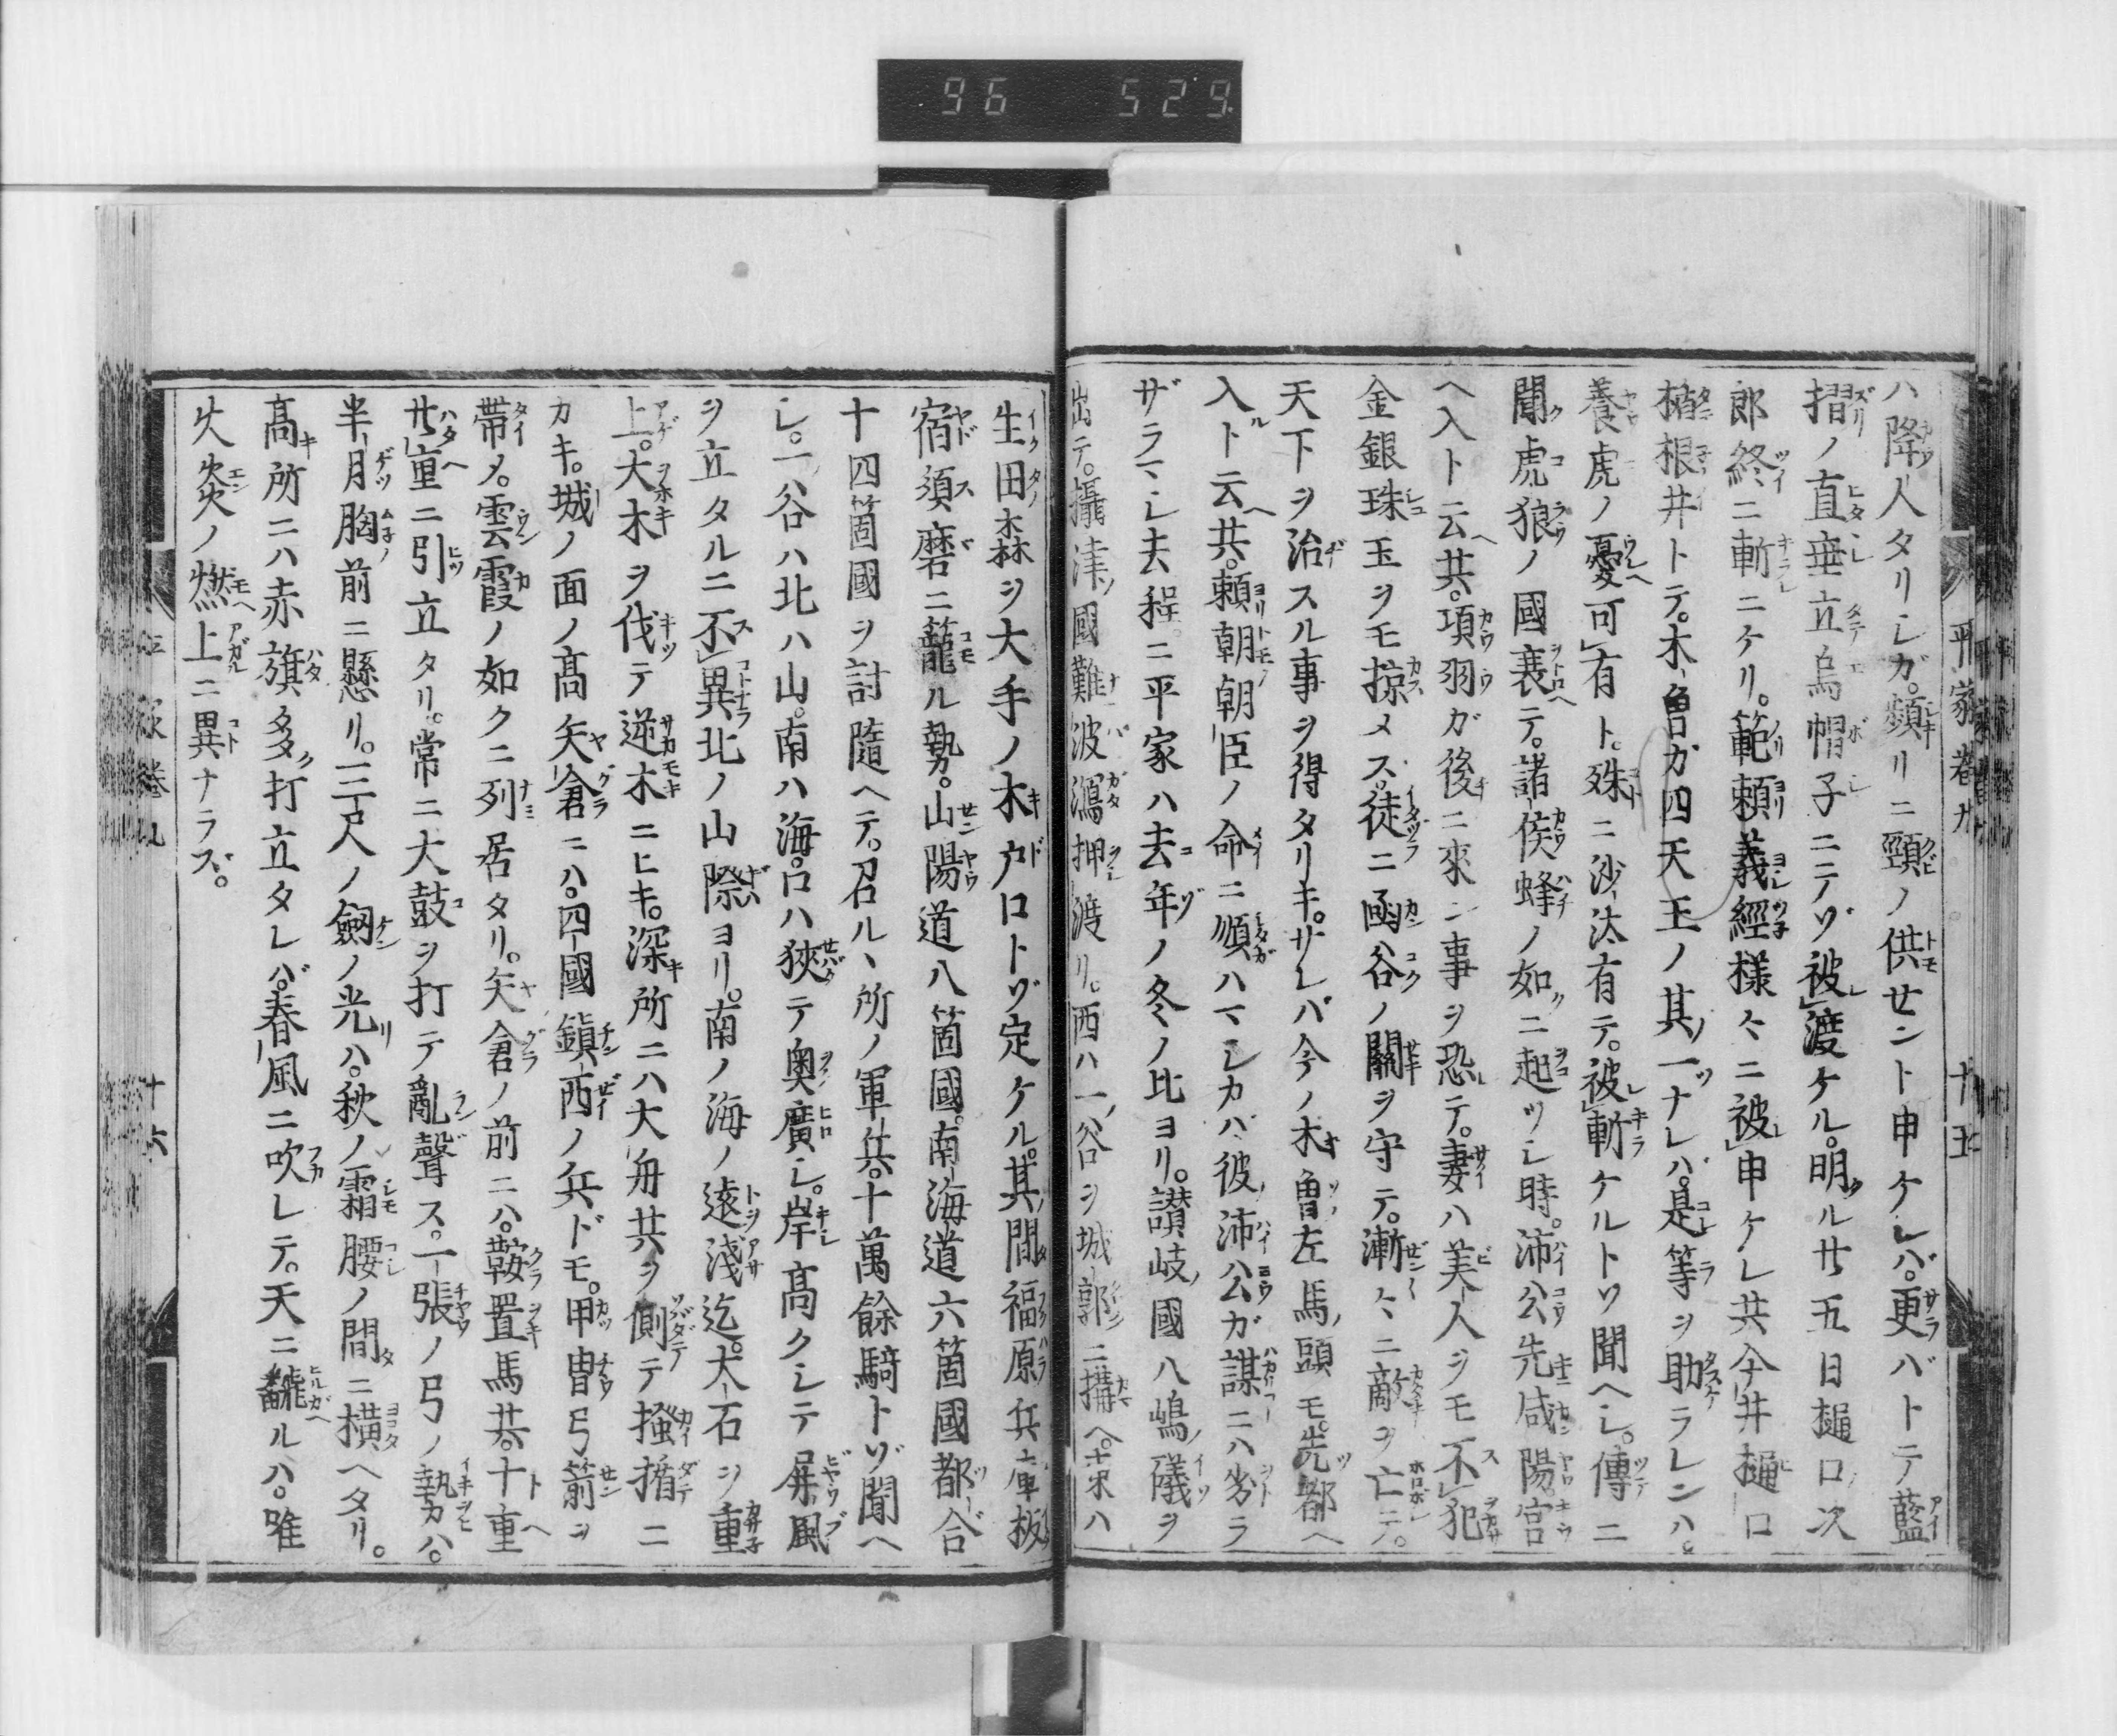 96 529
平家卷九 十五
ハ降人タリシガ。頻リニ頸ノ供セント申ケレバ。更バトテ藍
摺ノ直垂立烏帽子ニテゾ被渡ケル。明ル廿五日樋口次
郎終ニ斬ニケリ。範頼義經樣々ニ被申ケレ共今井樋口
楯根井トテ。木曽ガ四天王ノ其一ナレバ。是等ヲ助ラレンハ。
養虎ノ憂可有ト。殊ニ沙汰有テ。被斬ケルトソ聞ヘシ。傳ニ
聞虎狼ノ國衰テ。諸侯蜂ノ如ニ起ツシ時。沛公先咸陽宮
ヘ入ト云共。項羽ガ後ニ來ン事ヲ恐テ。妻ハ美人ヲモ不犯
金銀珠玉ヲモ掠メス。徒ニ凾谷ノ關ヲ守テ。漸々ニ敵ヲ亡テ。
天下ヲ治スル事ヲ得タリキ。サレバ今ノ木曽左馬頭モ。先都ヘ
入ト云共。頼朝朝臣ノ命ニ順ハマシカバ彼沛公ガ謀ニハ劣ラ
ザラマシ去程ニ平家ハ去年ノ冬ノ比ヨリ。讃岐國八嶋ノ礒ヲ
出テ。攝津國難波瀉押渡リ。西ハ一谷ヲ城郭ニ構ヘ。東ハ
生田森ヲ大手ノ木戸口トゾ定ケル。其間福原兵庫板
宿須磨ニ籠ル勢。山陽道八箇國。南海道六箇國都合
十四箇國ヲ討隨ヘテ。召ルヽ所ノ軍兵。十萬餘騎トゾ聞ヘ
シ。一谷ハ北ハ山。南ハ海。口ハ狹テ奥廣シ。岸高クシテ屏風
ヲ立タルニ不異北ノ山際ヨリ。南ノ海ノ遠淺迄。大石ヲ重
上。大木ヲ伐テ逆木ニヒキ。深所ニハ大舟共ヲ側テ掻楯ニ
カキ。城ノ面ノ高矢倉ニハ。四國鎮西ノ兵ドモ。甲冑弓箭ヲ
帶メ。雲霞ノ如クニ列居タリ。矢倉ノ前ニハ。鞍置馬共。十重
廿重ニ引立タリ。常ニ大鼓ヲ打テ亂聲ス。一張ノ弓ノ勢ハ。
半月胸前ニ懸リ。三尺ノ劔ノ光ハ。秋ノ霜腰ノ間ニ横ヘタリ。
高所ニハ赤旗多打立タレバ。春風ニ吹レテ。天ニ飜ルハ。唯
火炎ノ燃上ニ異ナラズ。
平家卷九 十六